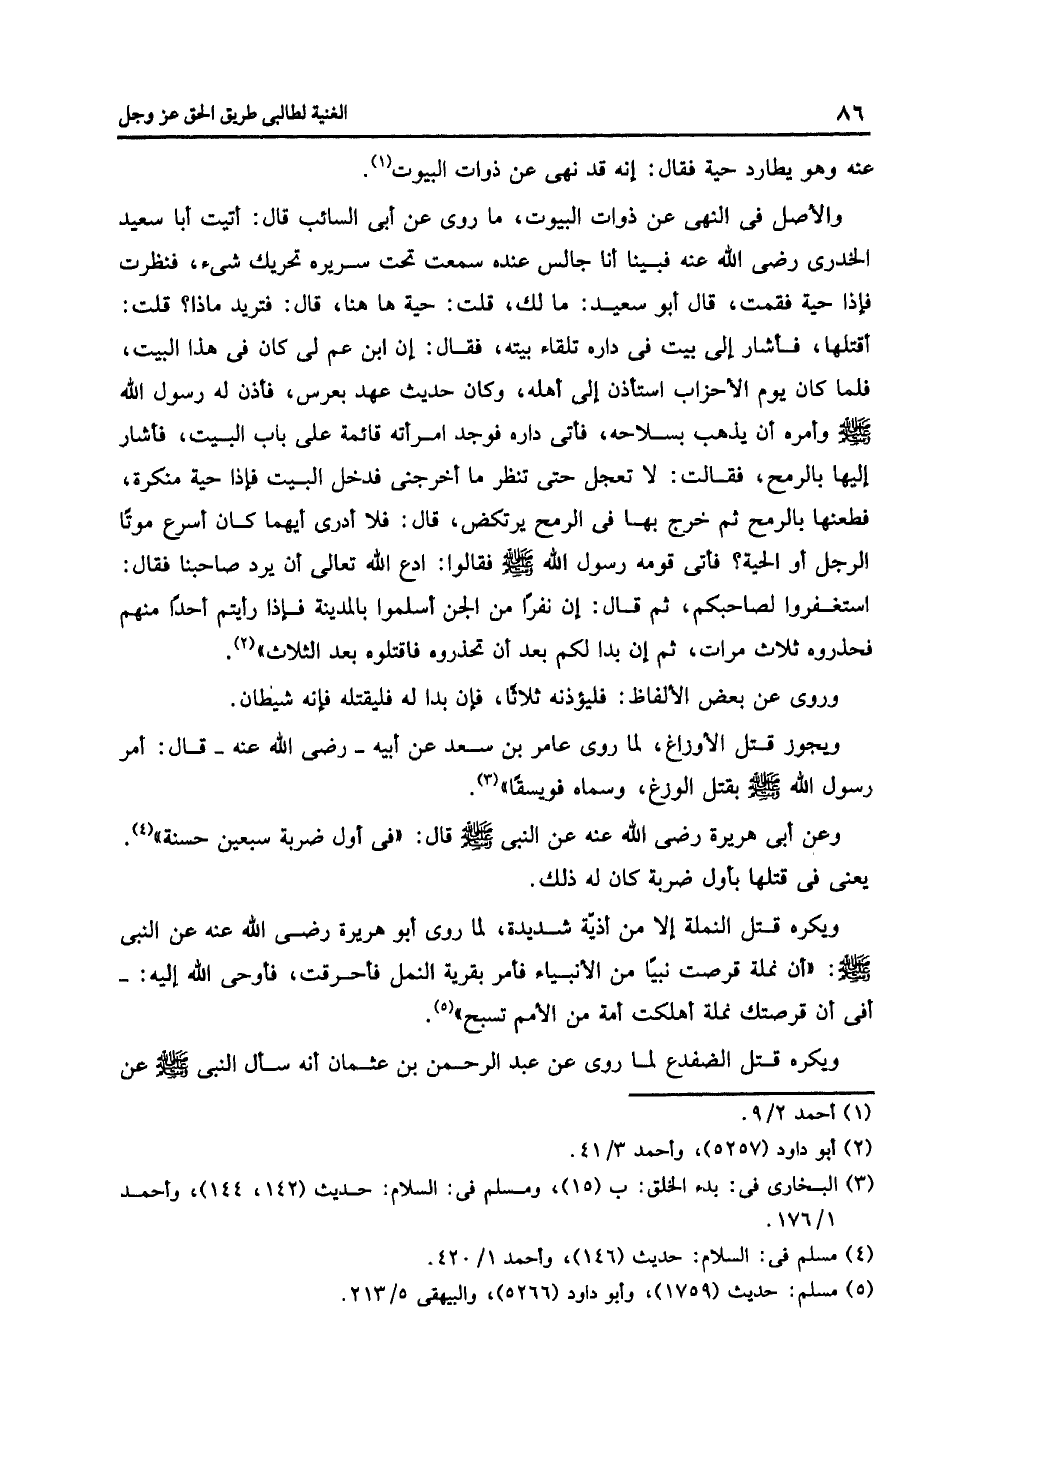 ٨٦ الغنية لطالبى طريق الحق عز وجل
عنه وهو يطارد حية فقال: إنه قد نهى عن ذوات البيوت(١).
والأصل فى النهى عن ذوات البيوت، ما روى عن أبى السائب قال: أتيت أبا سعيد
الخدرى رضى الله عنه فبينا أنا جالس عنده سمعت تحت سريره تحريك شىء، فنظرت
فإذا حية فقمت، قال أبو سعيد: ما لك، قلت: حية ها هنا، قال: فتريد ماذا؟ قلت:
أقتلها، فأشار إلى بيت فى داره تلقاء بيته، فقال: إن ابن عم لى كان فى هذا البيت،
فلما كان يوم الأحزاب استأذن إلى أهله، وكان حديث عهد بعرس، فأذن له رسول الله
ﷺ وأمره أن يذهب بسلاحه، فأتى داره فوجد امرأته قائمة على باب البيت، فأشار
إليها بالرمح، فقالت: لا تعجل حتى تنظر ما أخرجنى فدخل البيت فإذا حية منكرة،
فطعنها بالرمح ثم خرج بها فى الرمح يرتكض، قال: فلا أدرى أيهما كان أسرع موتًا
الرجل أو الحية؟ فأتى قومه رسول الله ﷺ فقالوا: ادع الله تعالى أن يرد صاحبنا فقال:
استغفروا لصاحبكم، ثم قال: إن نفرًا من الجن أسلموا بالمدينة فإذا رأيتم أحدًا منهم
فحذروه ثلاث مرات، ثم إن بدا لكم بعد أن تحذروه فاقتلوه بعد الثلاث»(٢).
وروى عن بعض الألفاظ: فليؤذنه ثلاثًا، فإن بدا له فليقتله فإنه شيطان.
ويجوز قتل الأوزاغ، لما روى عامر بن سعد عن أبيه - رضى الله عنه - قال: أمر
رسول الله ﷺ بقتل الوزغ، وسماه فويسقًا»(٣).
وعن أبى هريرة رضى الله عنه عن النبى ﷺ قال: «فى أول ضربة سبعين حسنة»(٤).
يعنى فى قتلها بأول ضربة كان له ذلك.
ويكره قتل النملة إلا من أذيّة شديدة، لما روى أبو هريرة رضى الله عنه عن النبى
ﷺ: «أن نملة قرصت نبيًا من الأنبياء فأمر بقرية النمل فأحرقت، فأوحى الله إليه: -
أفى أن قرصتك نملة أهلكت أمة من الأمم تسبح»(٥).
ويكره قتل الضفدع لما روى عن عبد الرحمن بن عثمان أنه سأل النبى ﷺ عن
(١) أحمد ٩/٢.
(٢) أبو داود (٥٢٥٧)، وأحمد ٤١/٣.
(٣) البخارى فى: بدء الخلق: ب (١٥)، ومسلم فى: السلام: حديث (١٤٢، ١٤٤)، وأحمد
١٧٦/١.
(٤) مسلم فى: السلام: حديث (١٤٦)، وأحمد ٤٢٠/١.
(٥) مسلم: حديث (١٧٥٩)، وأبو داود (٥٢٦٦)، والبيهقى ٢١٣/٥.